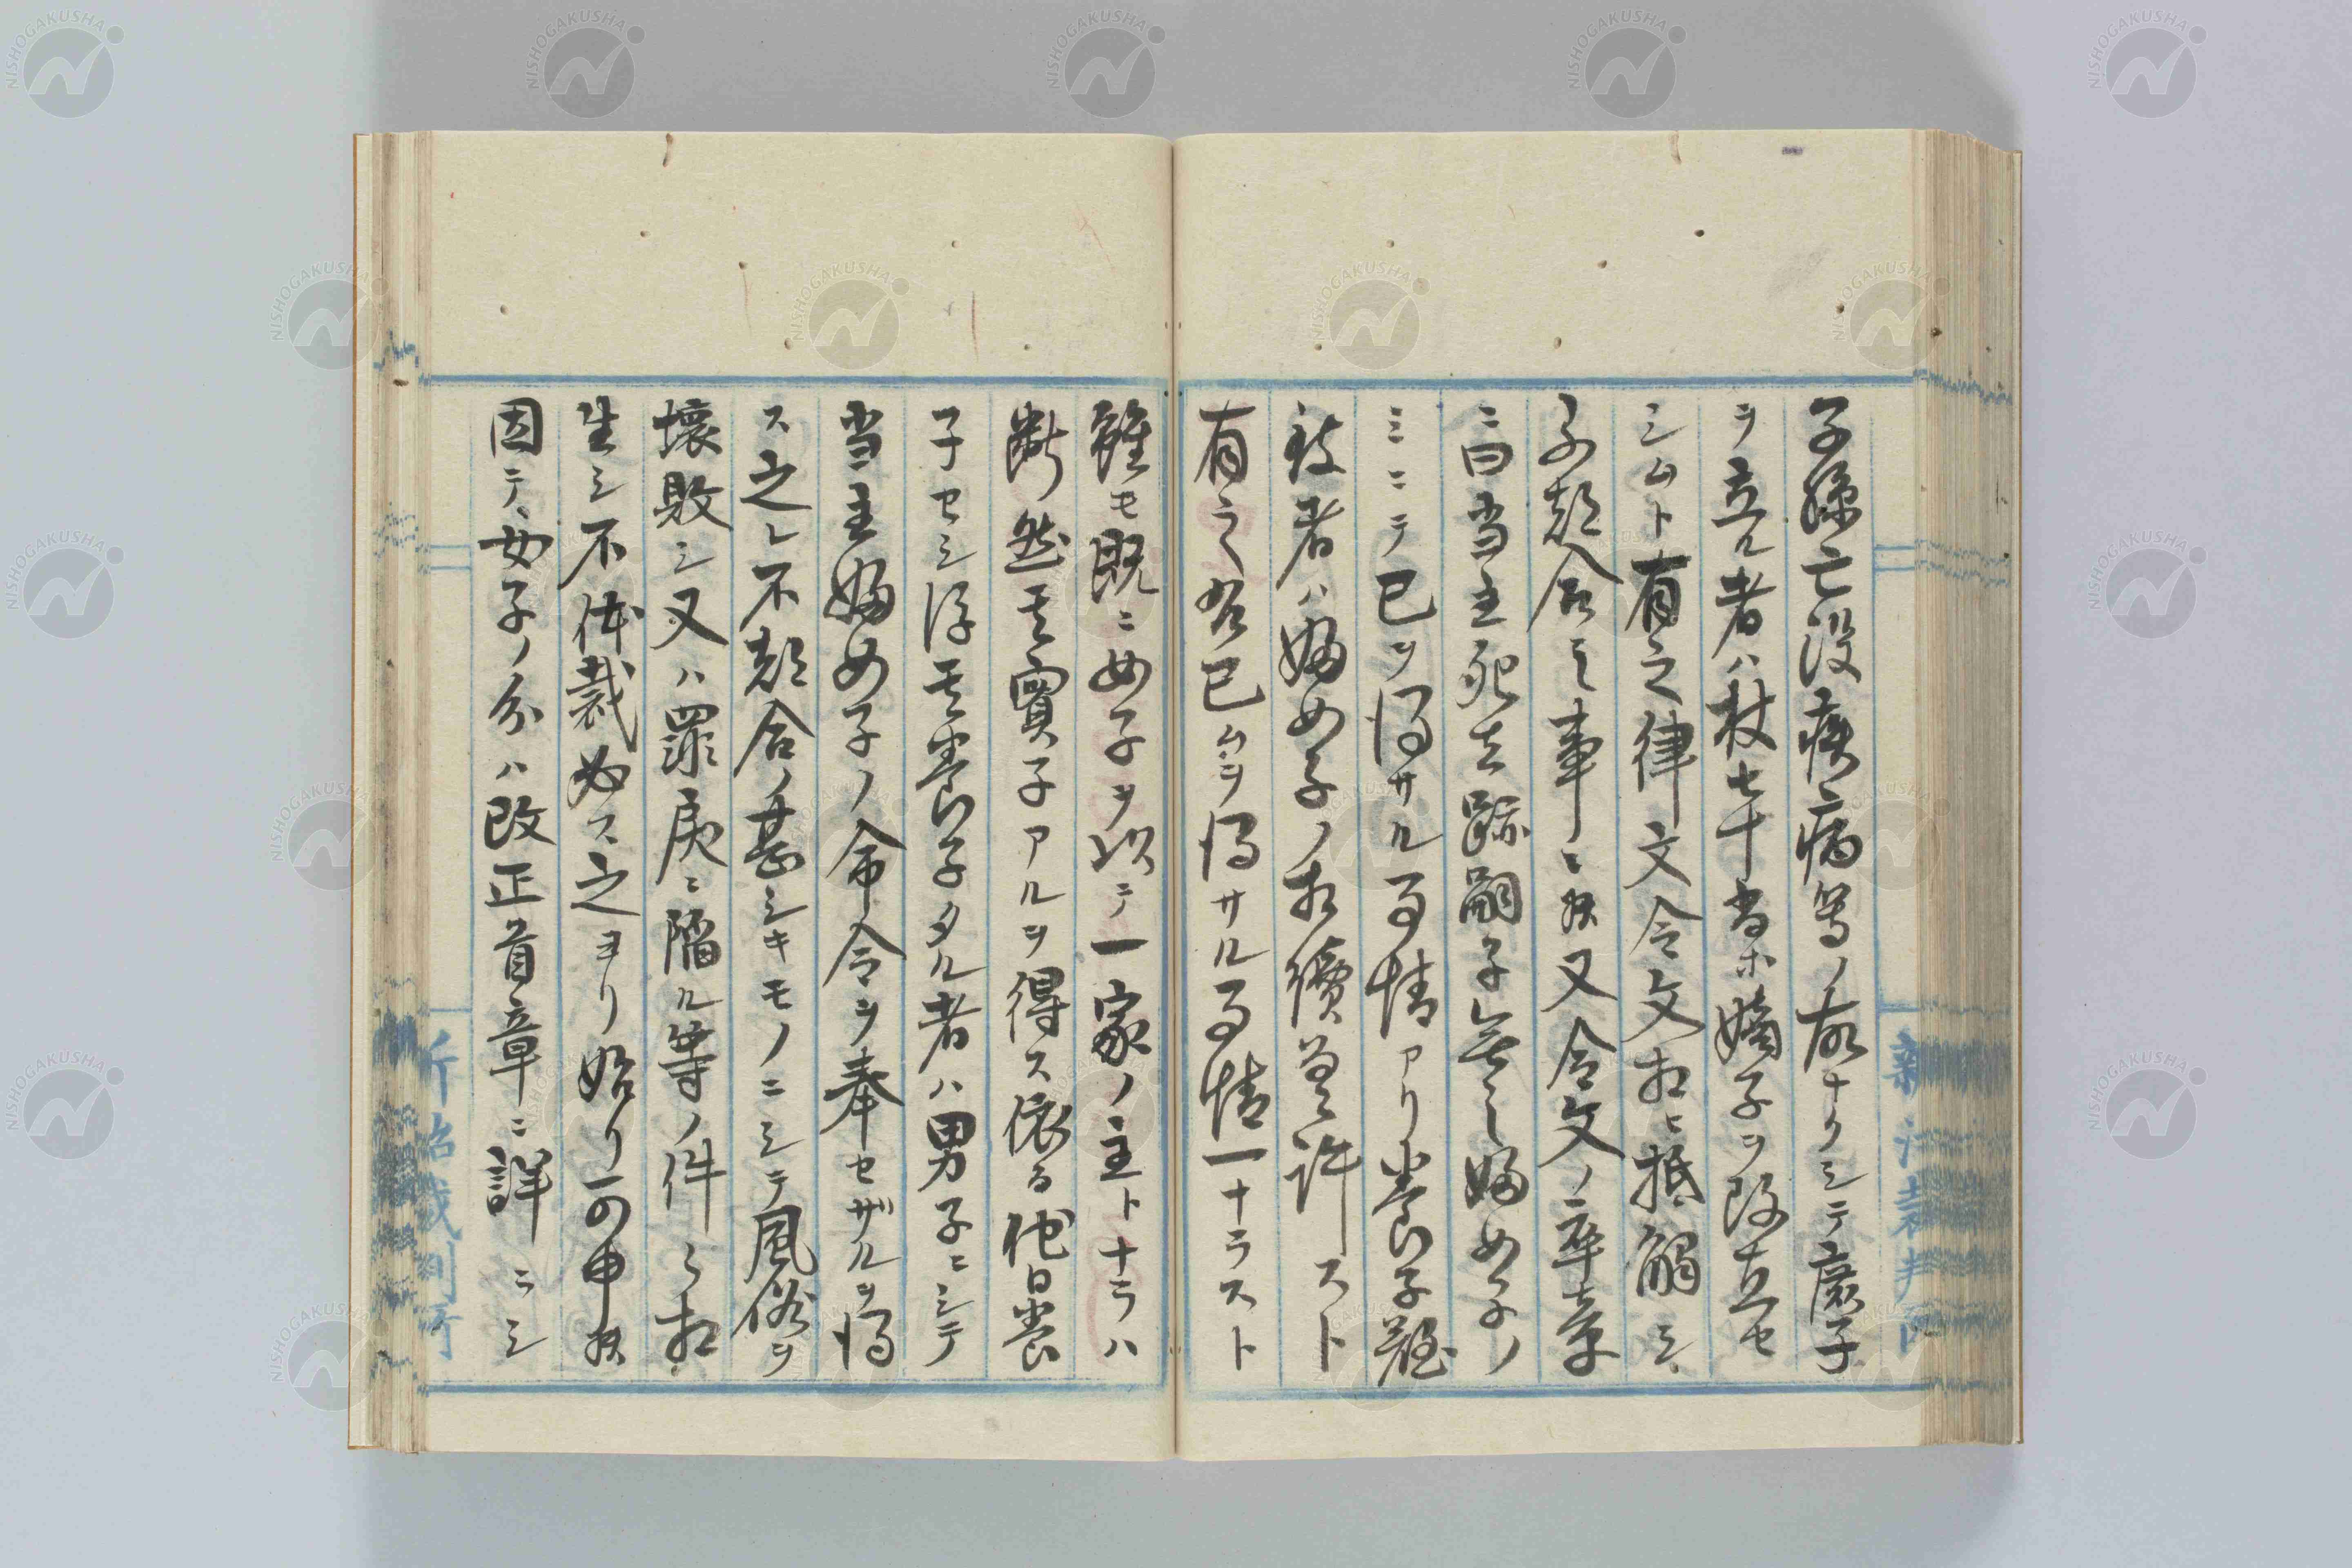 子孫亡没疾病等ノ故ナクシテ庶子
ヲ立ル者ハ杖七十尚ホ嫡子ヲ改立セ
シムト有之律文令文相ヒ抵觸シ
不都合之事ニ候又令文ノ卒章
ニ曰当主死去跡嗣子無之婦女子ノ
ミニテ已ヲ得サル事情アリ養子難
致者ハ婦女子ノ相續差許スト
有之右已ムヲ得サル事情一ナラスト
雖モ既ニ女子ヲ以テ一家ノ主トナラハ
断然其實子アルヲ得ス依る他日養
子セシ得其養子タル者ハ男子ニシテ
当主婦女子ノ命令ヲ奉セザルヲ得
ス之レ不都合ノ甚シキモノニシテ風俗ヲ
壊敗シ又ハ罪戻ニ陥ル等ノ件々相
生シ不体裁必ス之ヨリ始リ可申候
因テ女子ノ分ハ改正首章ニ詳ニシ
新治裁判所
新治裁判所
NISHOGAKUSHA